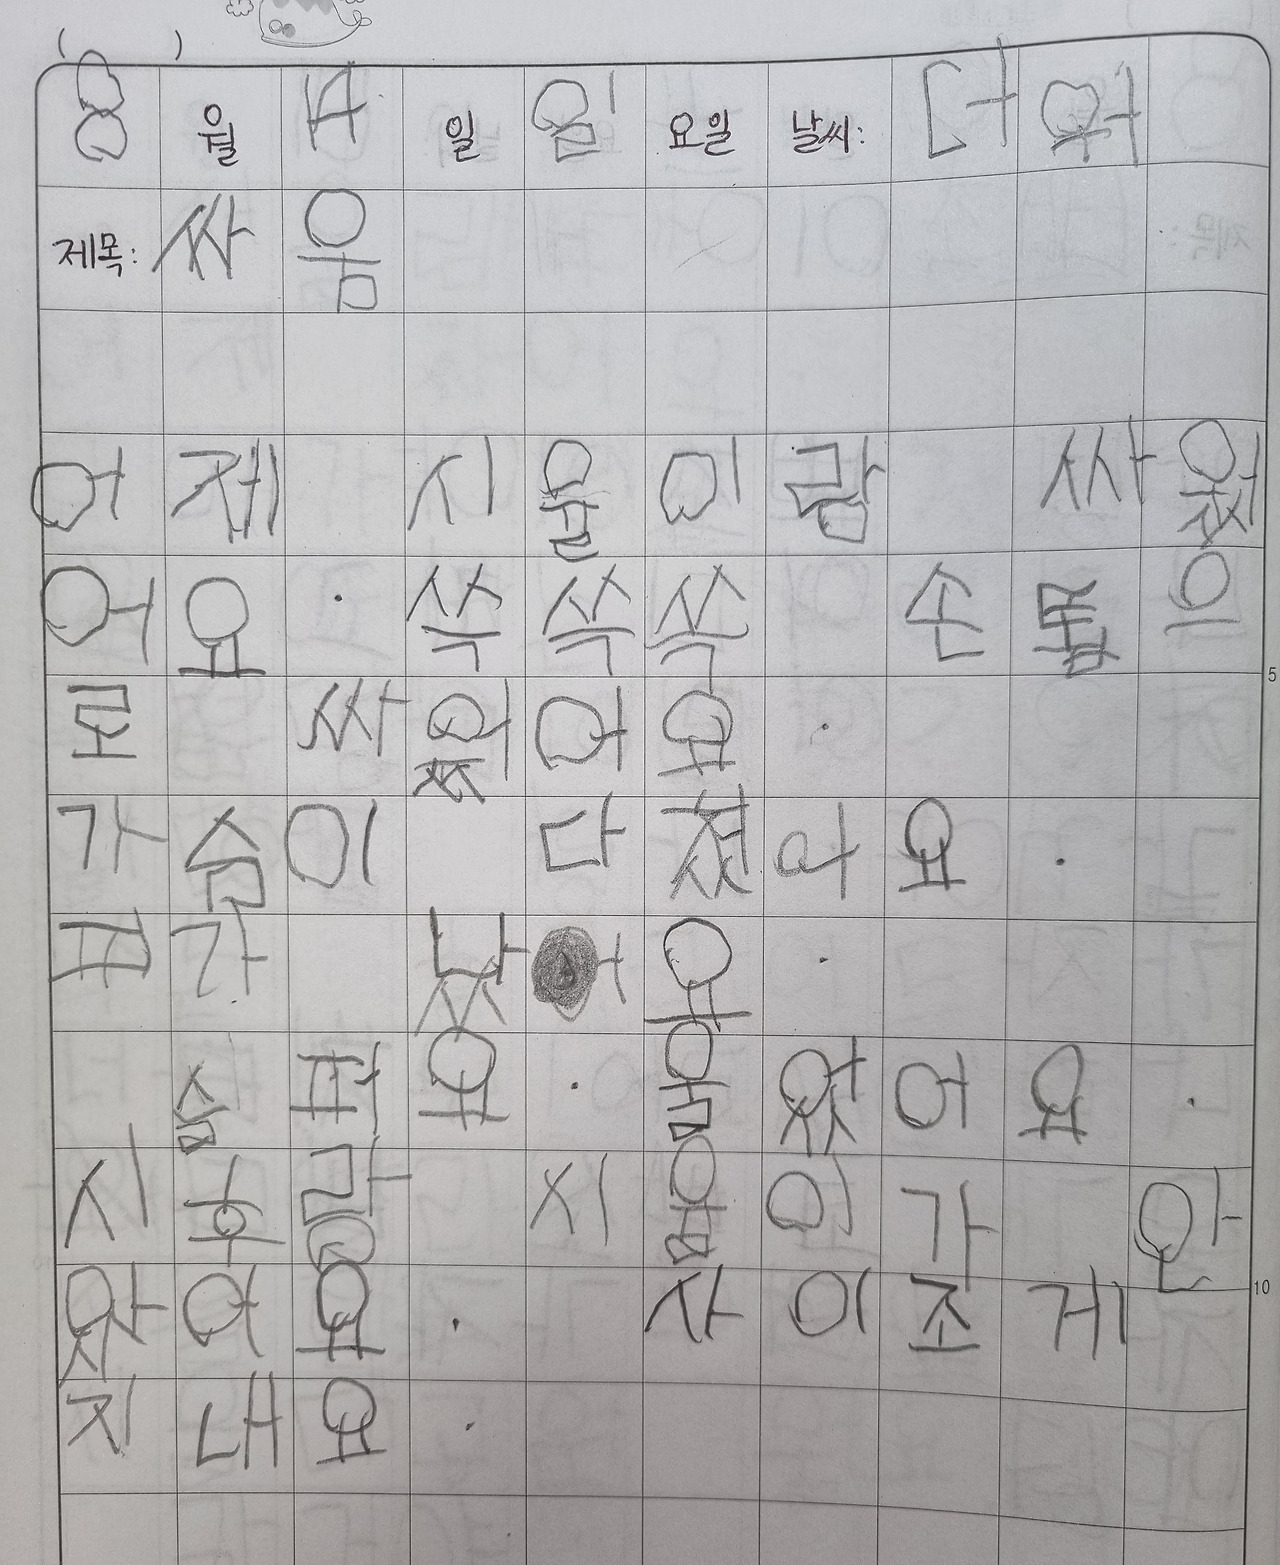 ( )
8월 4일 일요일 날씨: 더워
제목: 싸움
어제 시율이랑 싸웠
어요. 쓱쓱쓱 손톱으
5
로 싸웠어요.
가슴이 다쳣어요.
피가 낫어요.
슬퍼요. 울엇어요.
시후랑 시율이가 안
앗어요. 사이조게
10
지내요.